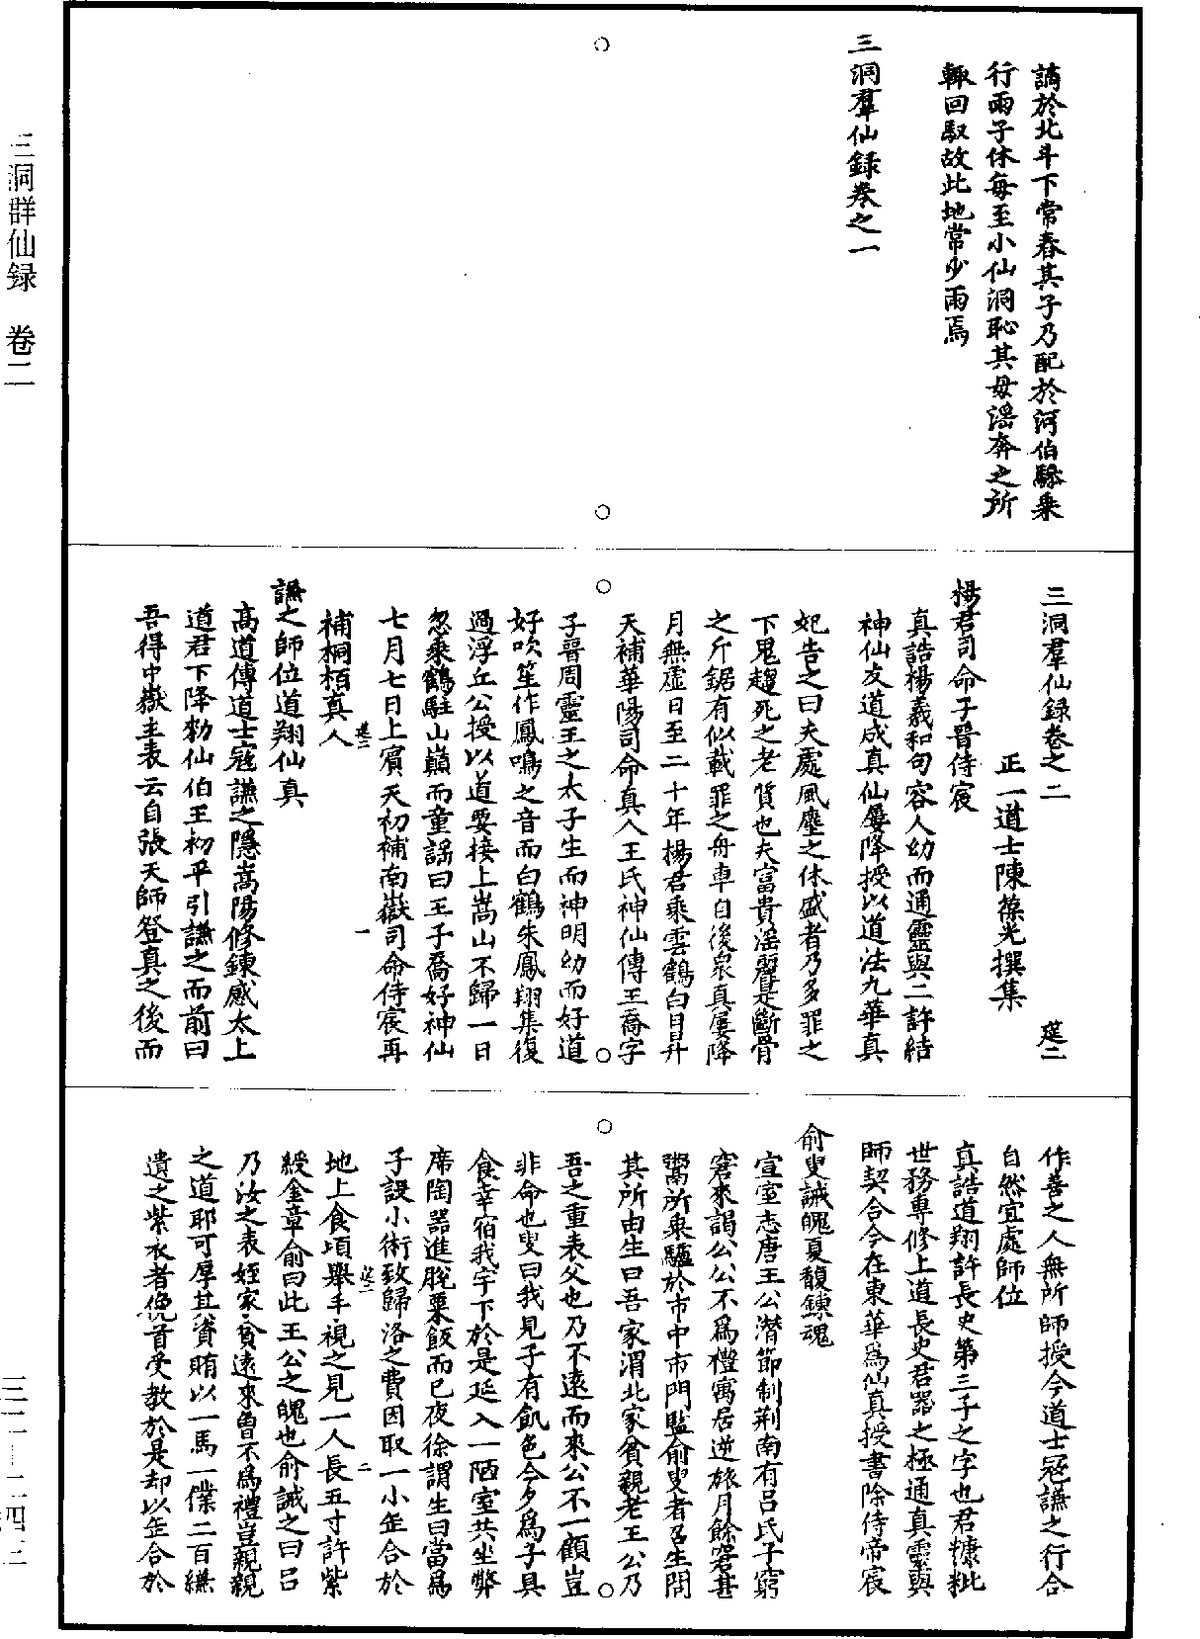 三洞群仙録　卷二
謫於北斗下常舂其子乃配於河伯驂乗
行雨子休每至小仙洞恥其母滛奔之所
輙回馭故此地常少雨焉
三洞羣仙錄卷之一
三洞羣仙錄卷之二
筵二
正一道士陳葆光撰集
楊君司命子晋侍宸
真誥楊羲和句容人幼而通靈與二許結
神仙友道成真仙屢降授以道法九華真
妃告之曰夫處風塵之休盛者乃多罪之
下鬼趨死之老質也夫富貴滛麗是斷骨
之斤鋸有似載罪之舟車自後衆真屢降
月無虚日至二十年楊君乘雲鶴白日昇
天補華陽司命真人王氏神仙傳王喬字
子晋周靈王之太子生而神明幼而好道
好吹笙作鳳鳴之音而白鶴朱鳳翔集復
過浮丘公授以道要接上嵩山不歸一日
忽乘鶴駐山巔而童謡曰王子喬好神仙
七月七日上賓天初補南嶽司命侍宸再
補桐栢真人
筵二
一
謙之師位道翔仙真
高道傳道士寇謙之隱嵩陽修鍊感太上
道君下降勑仙伯王初平引謙之而前曰
吾得中嶽主表云自張天師登真之後而
作善之人無所師授今道士寇謙之行合
自然宜處師位
真誥道翔許長史第三子之字也君糠粃
世務專修上道長史君器之極通真靈與
師契合今在東華為仙真授書除侍帝宸
俞叟誡魄夏馥鍊魂
宣室志唐王公潜節制荆南有吕氏子窮
窘來謁公公不為禮寓居逆旅月餘窘甚
鬻所乗驢於市中市門監俞叟者召生問
其所由生曰吾家渭北家貧親老王公乃
吾之重表父也乃不逺而來公不一顧豈
非命也叟曰我見子有飢色今夕為子具
食幸宿我宇下於是延入一陋室共坐弊
席陶器進脫粟飯而已夜徐謂生曰當為
子設小術致歸洛之費因取一小缶合於
筵二
二
地上食頃舉手視之見一人長五寸許紫
綬金章俞曰此王公之魄也俞誡之曰吕
乃汝之表姪家貧逺來曾不為禮豈親親
之道耶可厚其資賄以一馬一僕二百縑
遺之紫衣者俛首受教於是却以缶合於